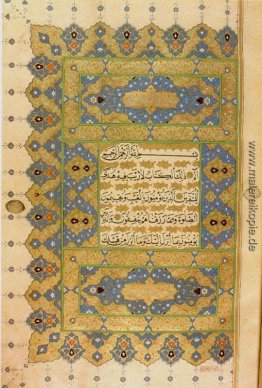 بسم الله الرحمن الرحيم
الم ذلك الكتاب لا ريب فيه هدى
للمتقين الذين يؤمنون بالغيب ويقيمون
الصلوة ومما رزقناهم ينفقون والذين
يؤمنون بما انزل اليك وما انزل من قبلك
www.malereikopie.de